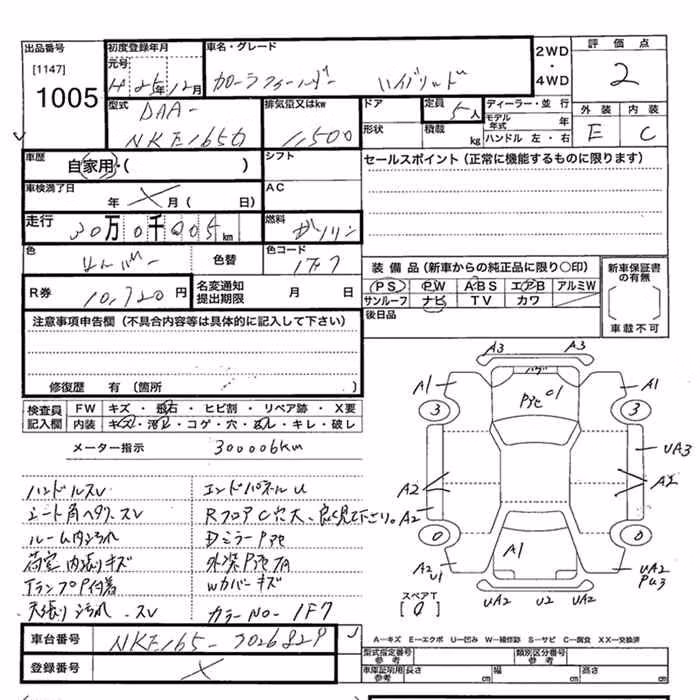 出品番号
[1147]
1005
初度登録年月
元号
H 25年12月
車名・グレード
カローラフィールダー ハイブリッド
2WD
・
4WD
評価点
2
型式
DAA-
NKE165G
排気量又はkw
1,500
ドア
形状
定員
5人
積載
kg
ディーラー・並行
モデル年式 年
ハンドル 左・右
外装
E
内装
C
車歴
自家用・( )
シフト
セールスポイント (正常に機能するものに限ります)
車検満了日
年 X 月( 日)
AC
走行
30万0千005km
燃料
ガソリン
色
シルバー
色替
色コード
1F7
装備品 (新車からの純正品に限り○印)
PS PW ABS エアB アルミW
サンルーフ ナビ TV カワ
後日品
新車保証書の有無
車載不可
R券
10,720円
名変通知
提出期限
月 日
注意事項申告欄 (不具合内容等は具体的に記入して下さい)
修復歴 有 (箇所 )
検査員
記入欄
FW キズ・飛石・ヒビ割・リペア跡・X要
内装 キズ・汚れ・コゲ・穴・ぬレ・キレ・破レ
メーター指示 300006km
ハンドルスレ エンドパネルU
シート角ヘタリ、スレ RフロアC穴大、良く見て下さい。
ルーム内汚れ DミラーP死
荷室内張りキズ 外装P死有
天張り汚れ、スレ Wカバーキズ
カラーNo- 1F7
A3 A3
A1 A1
3 3
P死 01
UA3
A2 A2
A2
0 0
A1
A2 U1
UA2 PU3
UA2 U2 UA2
スペアT
[0]
A-キズ E-エクボ U-凹み W-補修跡 S-サビ C-腐食 XX-交換済
車台番号
NKE165-7026829
登録番号
X
型式指定番号
参考
類別区分番号
参考
車庫証明用
参考
長さ cm 幅 cm 高さ cm